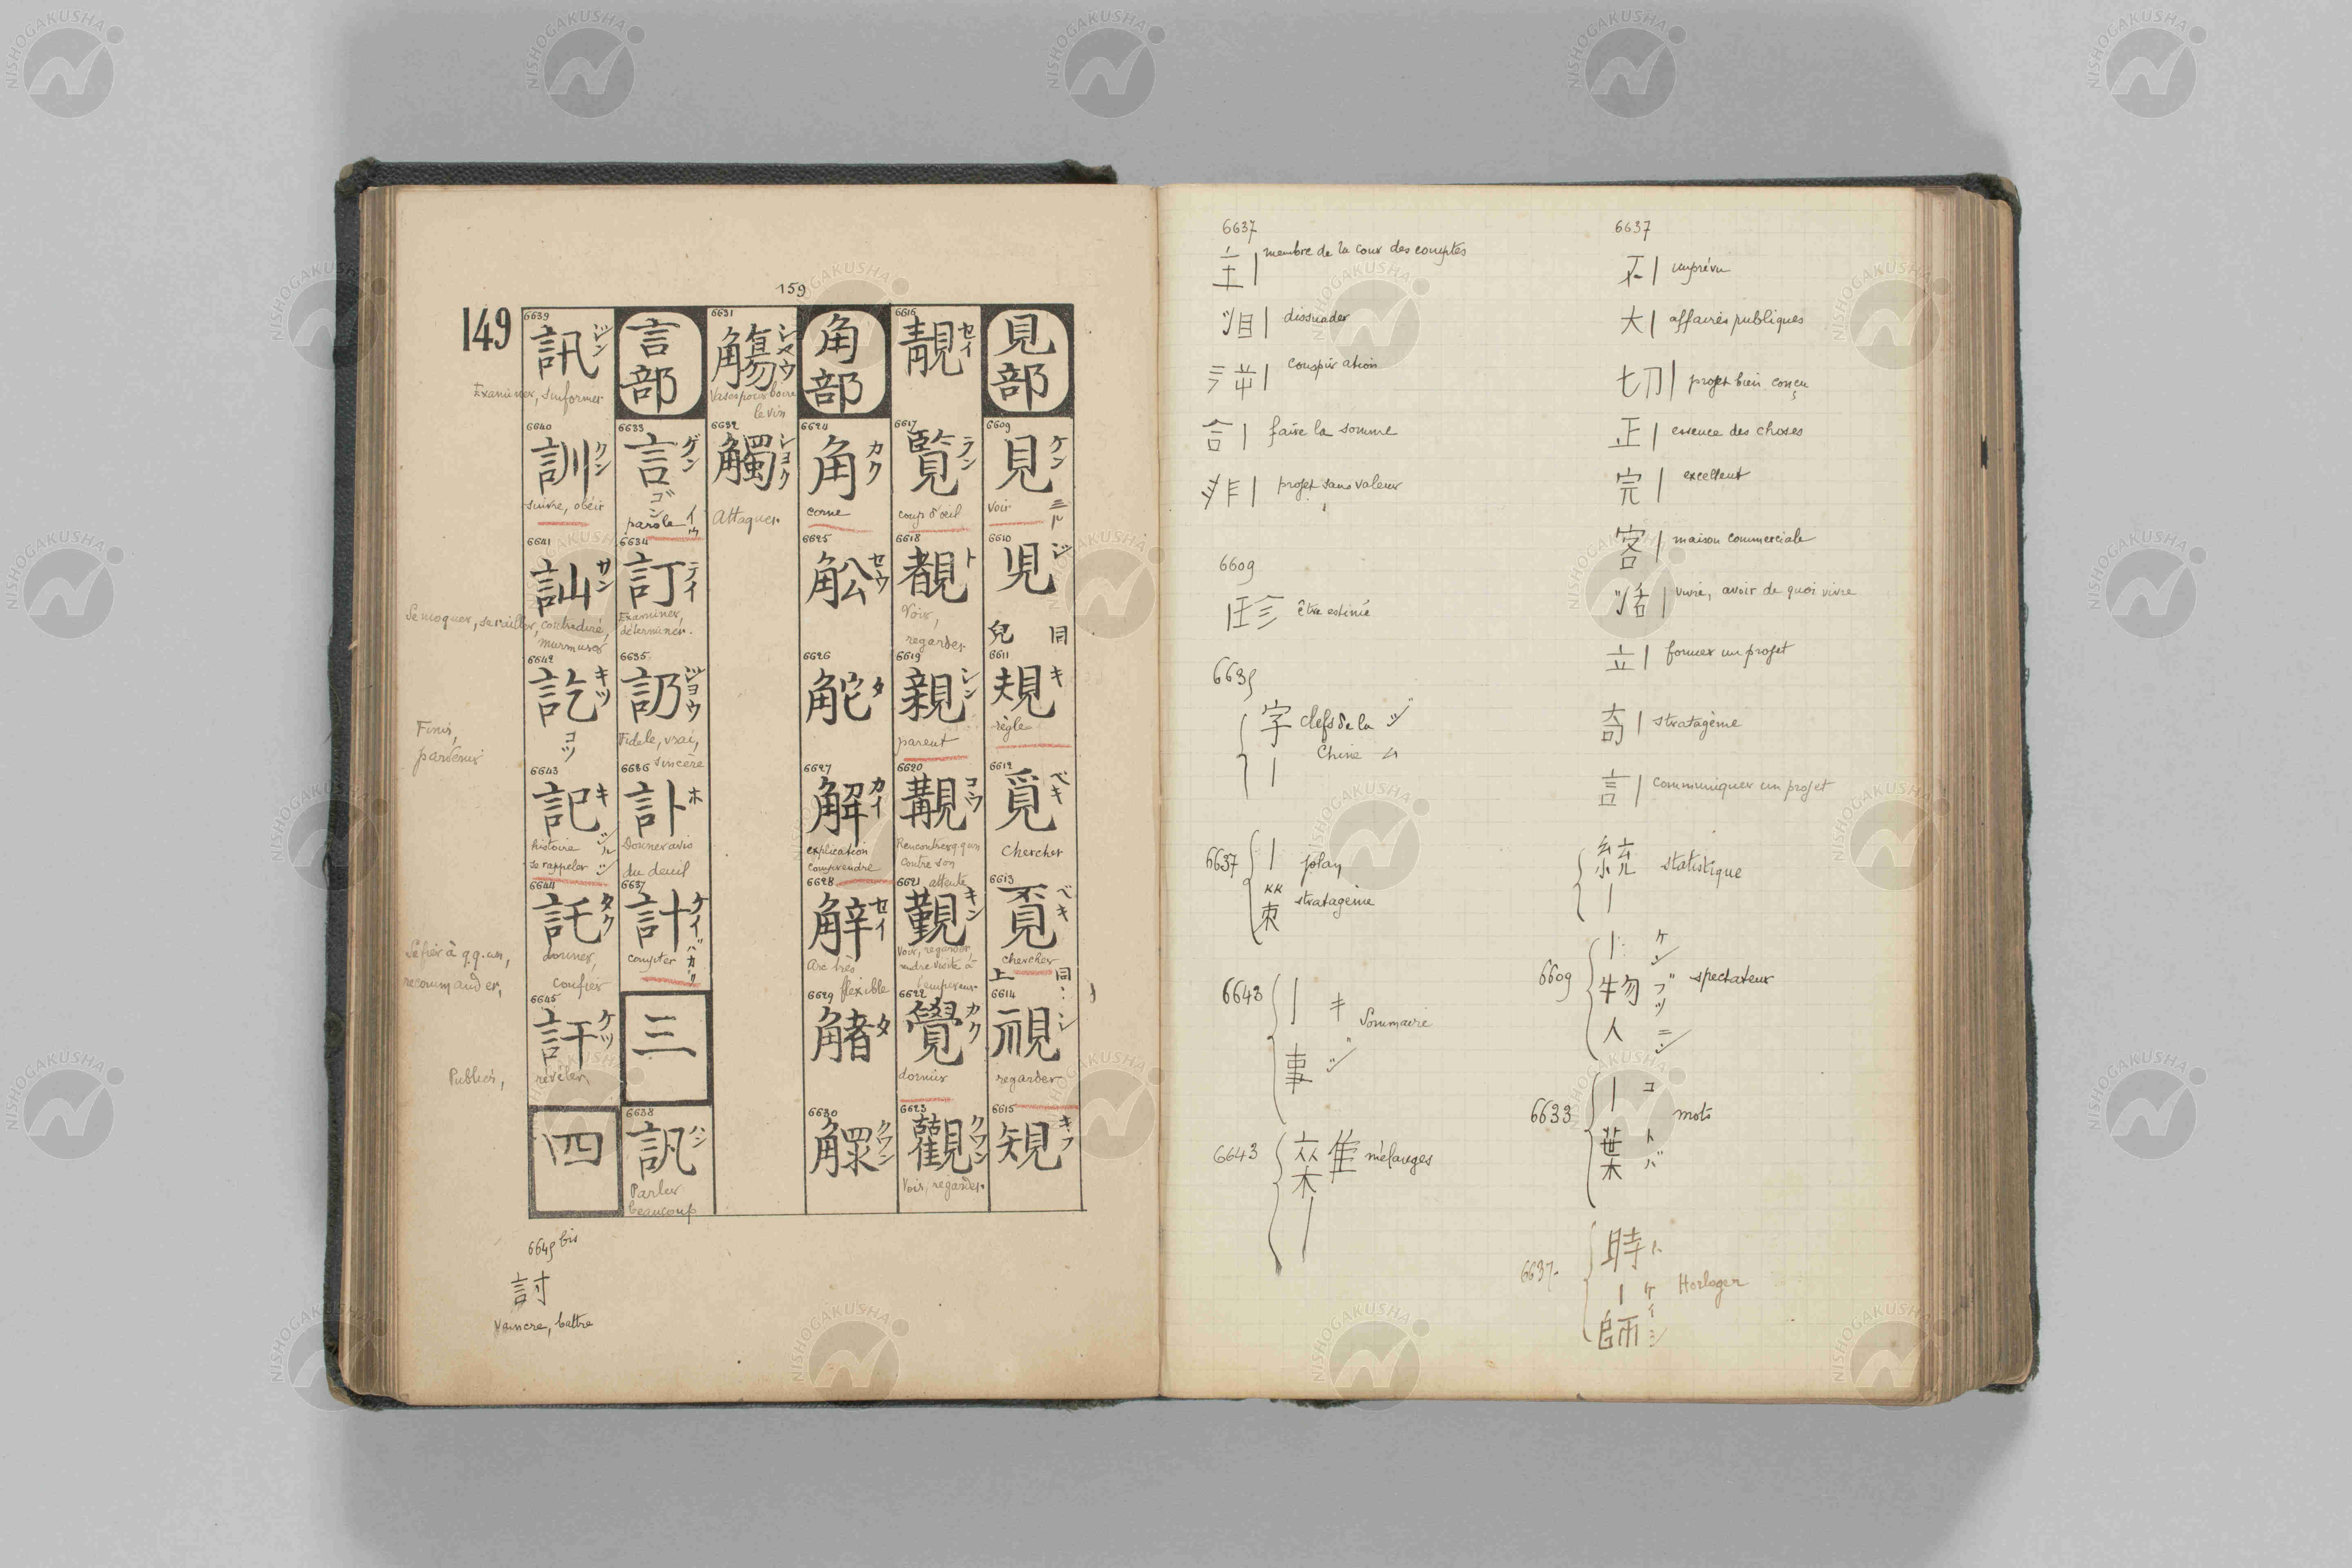 159
149
見部
6609
見 ケン
voir ミル
6610
児 ジ
兒 同
6611
規 キ
règle
6612
覓 ベキ
chercher
6613
覔 ベキ
chercher
上 同
6614
視 シ
regarder
6615
規 キフ
6616
靚 セイ
6617
覧 ラン
coup d'œil
6618
覩 ト
Voir,
regarder
6619
親 シン
parent
6620
覯 コウ
Rencontrer q.q'un
contre son
attente
6621
覲 キン
Voir, regarder,
rendre visite à
l'empereur
6622
覺 カク
dormir
6623
觀 クワン
Voir, regarder.
角部
6624
角 カク
corne
6625
舩 セウ
6626
舵 タ
6627
解 カイ
explication
comprendre
6628
觧 セイ
Arc très
flexible
6629
觰 タ
6630
鰥 クワン
6631
觴 シャウ
Vases pour boire
le vin
6632
觸 ショク
Attaquer.
言部
6633
言 ゲン
ゴン
parole イウ
6634
訂 テイ
Examiner,
déterminer.
6635
訒 ジョウ
Fidèle, vrai,
sincère
6636
訃 ホ
Donner avis
du deuil
6637
計 ケイ
compter
三
6638
訊 ハン
Parler
beaucoup
6639
訊 ジン
Examiner, s'informer
6640
訓 クン
suivre, obéir
6641
訕 サン
Se moquer, se railler, contredire,
murmurer
6642
訖 キツ
コツ
Finir,
parvenir
6643
記 キ
histoire
se rappeler
6644
託 タク
donner,
confier
Se fier à q.q.un,
recommander,
6645
訐 ケツ
révéler
Publier,
四
6645 bis
討
Vaincre, battre
6637
主| membre de la cour des comptes
沮| dissuader
conspiration
合| faire la somme
非| projet sans valeur
6609
珍 être estimé
6635
字 clefs de la
Chine
6637 | plan
策 stratagème
6643 | キ Sommaire
事 ジ
6643 雜 mélanges
|
6637
不| imprévu
大| affaires publiques
切| projet bien conçu
正| essence des choses
完| excellent
客| maison commerciale
活| vivre, avoir de quoi vivre
立| former un projet
奇| stratagème
言| communiquer un projet
統 statistique
|
6609 | ケン
物 ブツ spectateur
人 ニン
6633 | コ
葉 トバ mots
6637. 時 ト
| ケイ Horloger
師 シ